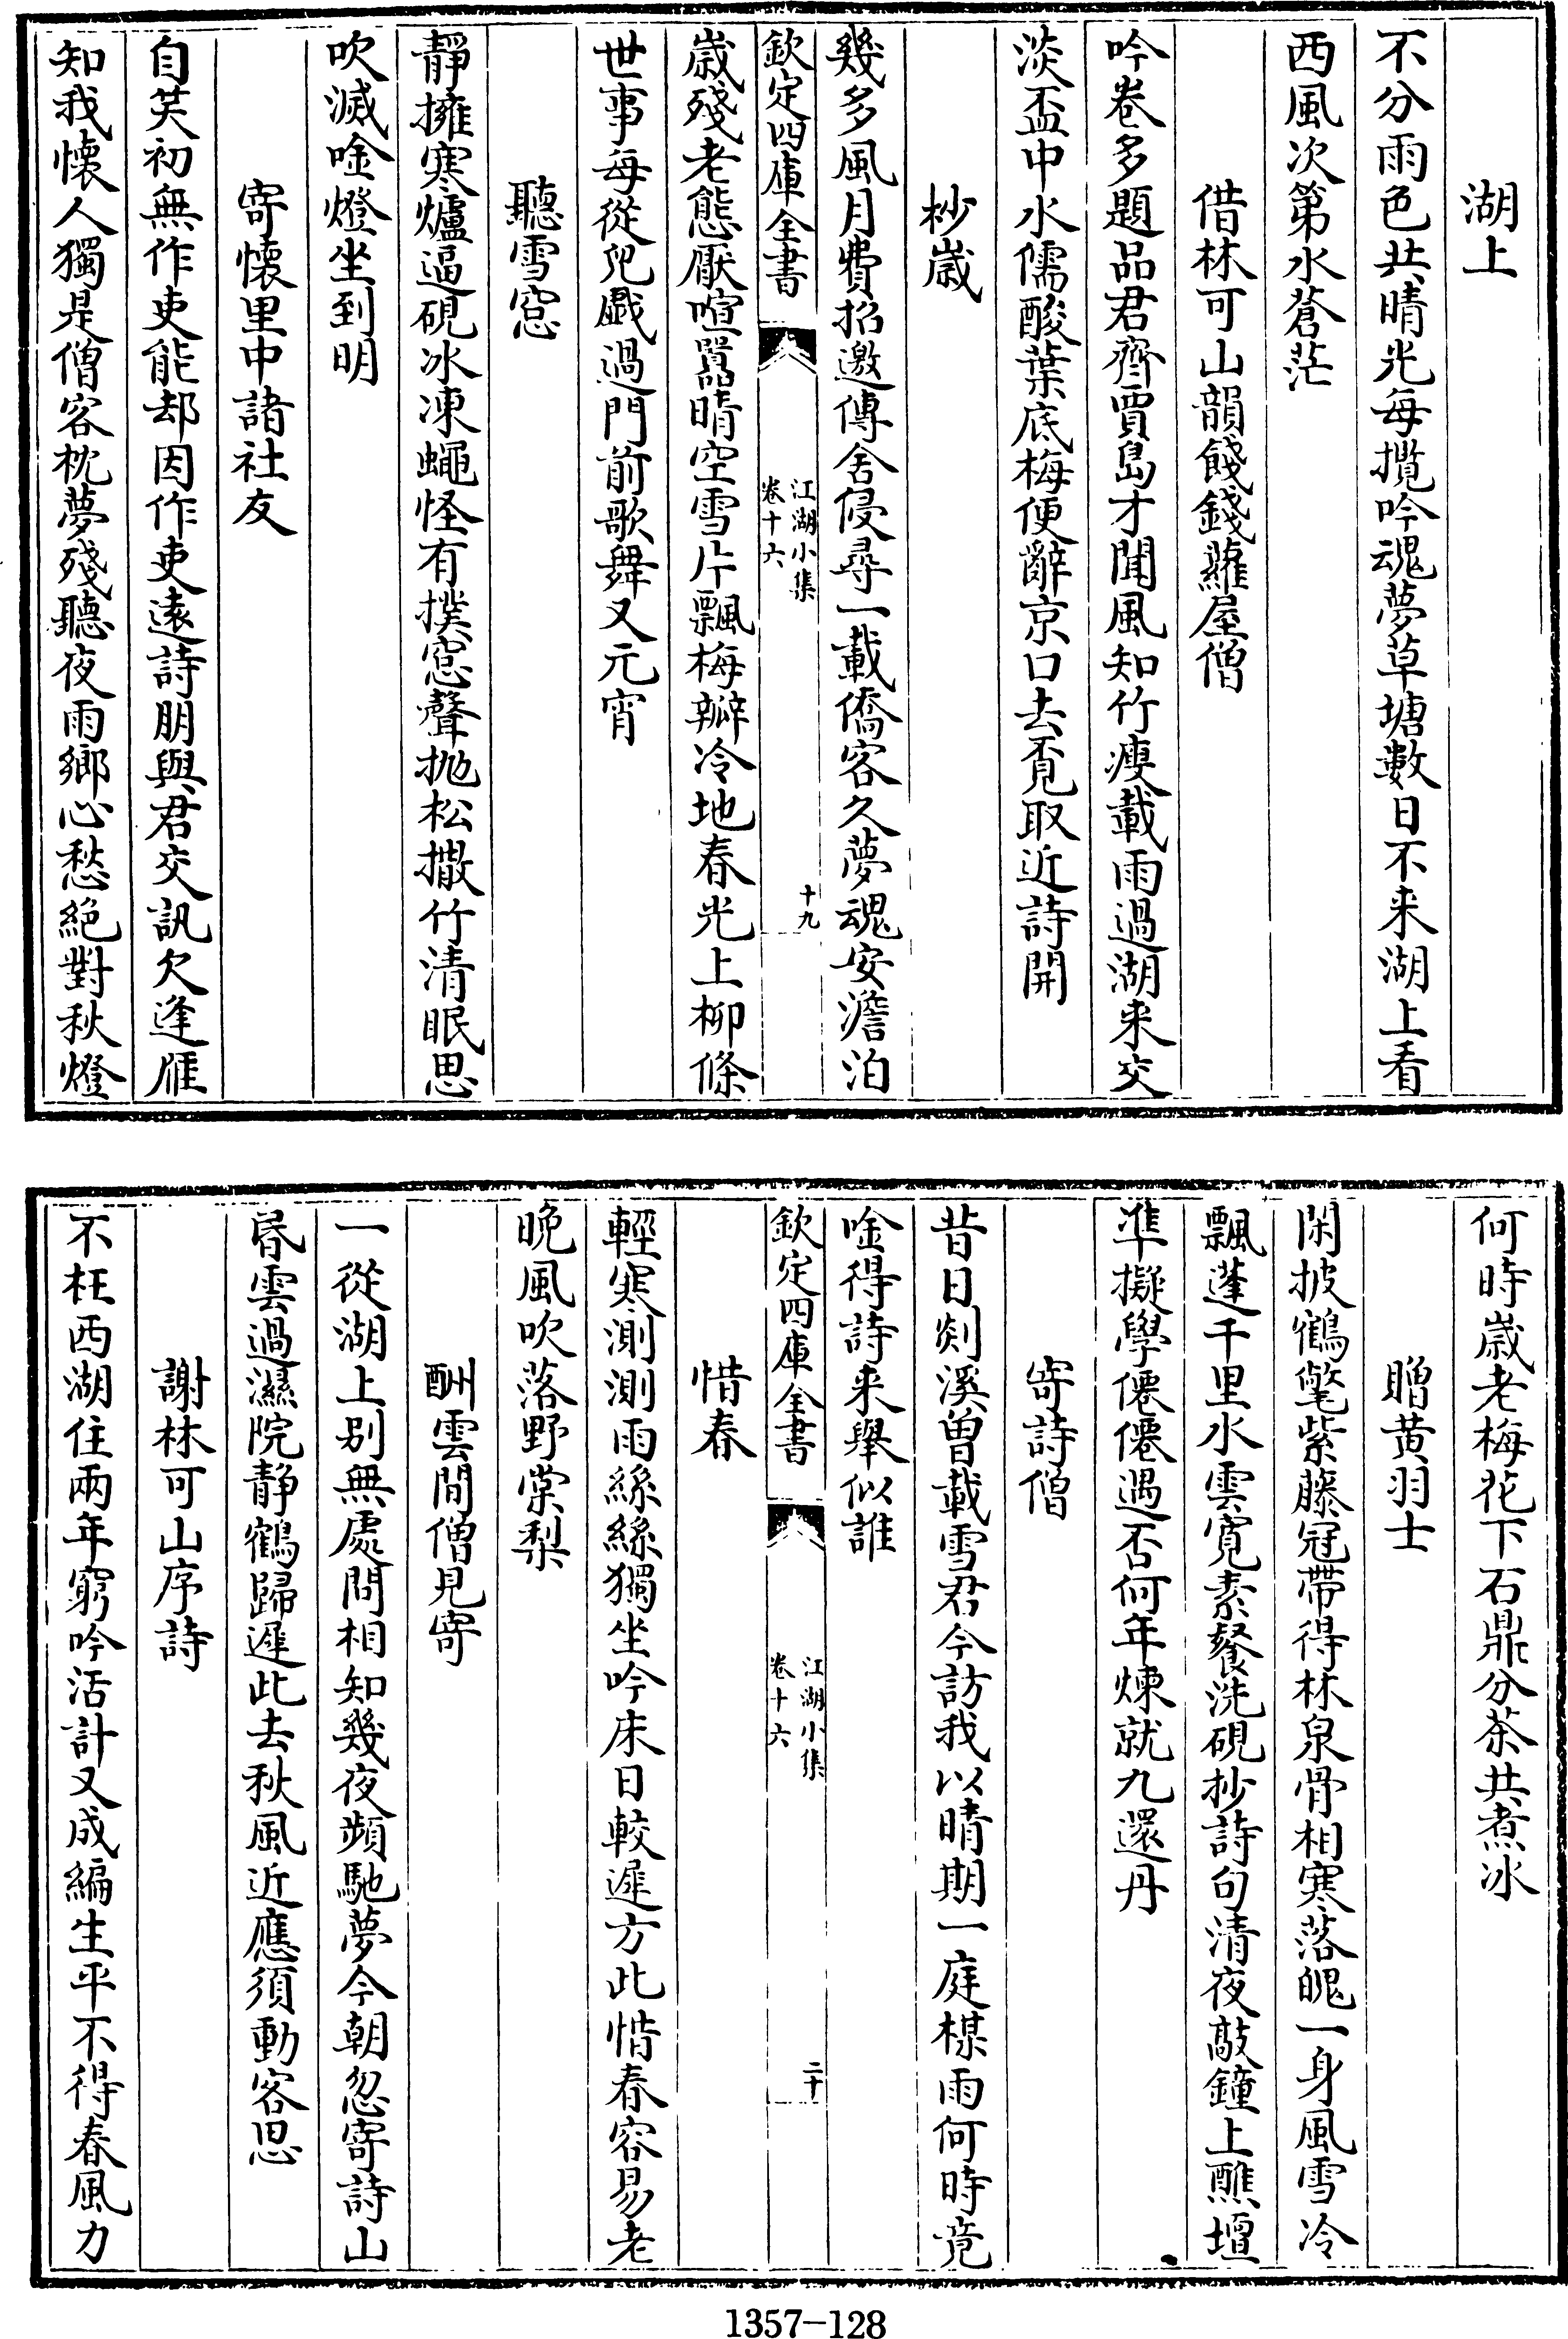 湖上
不分雨色共晴光每攬吟魂夢草塘數日不来湖上看
西風次第水蒼茫
借林可山韻餞錢蘿屋僧
吟卷多題品君齊賈島才聞風知竹瘦載雨過湖来交
淡盃中水儒酸葉底梅便辭京口去覔取近詩開
杪歳
幾多風月費招邀傳舍侵尋一載僑客久夢魂安澹泊
欽定四庫全書
江湖小集
卷十六
十九
歳殘老態厭喧囂晴空雪片飄梅瓣冷地春光上柳條
世事每從兒戯過門前歌舞又元宵
聽雪窓
靜擁寒爐逼硯冰凍蠅怪有撲窓聲抛松撒竹清眠思
吹滅唫燈坐到明
寄懐里中諸社友
自笑初無作吏能却因作吏遠詩朋與君交訊欠逢雁
知我懐人獨是僧客枕夢殘聽夜雨鄉心愁絕對秋燈
何時歳老梅花下石鼎分茶共煮冰
贈黄羽士
閑披鶴氅紫藤冠帶得林泉骨相寒落魄一身風雪冷
飄蓬千里水雲寛素餐洗硯抄詩句清夜敲鐘上醮壇
凖擬學僊僊遇否何年煉就九還丹
寄詩僧
昔日剡溪曽載雪君今訪我以晴期一庭楳雨何時竟
唫得詩来舉似誰
欽定四庫全書
江湖小集
卷十六
二十
惜春
輕寒測測雨絲絲獨坐吟床日較遲方此惜春容易老
晚風吹落野棠梨
酬雲間僧見寄
一從湖上别無處問相知幾夜頻馳夢今朝忽寄詩山
昬雲過濕院静鶴歸遲此去秋風近應須動客思
謝林可山序詩
不枉西湖住兩年窮吟活計又成編生平不得春風力
1357-128